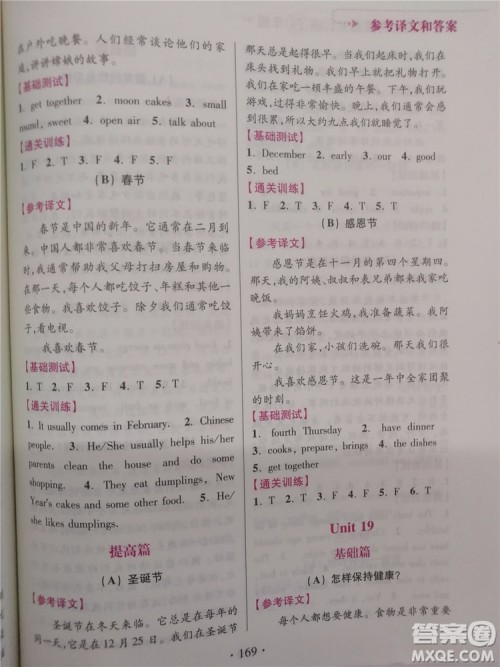 参考译文和答案
在户外吃晚餐。人们经常谈论他们的家
庭，讲讲嫦娥的故事。
【基础测试】
1. get together 2. moon cakes 3. small
round, sweet 4. open air 5. talk about
【通关训练】
1. F 2. T 3. F 4. F 5. F
(B) 春节
【参考译文】
春节是中国的新年。它通常在二月到
来。中国人都非常喜欢春节。当春节来临
时，我通常帮助我父母打扫房屋和购物。
在那一天，每个人都吃饺子、年糕和其他一
些食物。我喜欢饺子。除夕我们通常吃饺
子，看电视。
我喜欢春节。
【基础测试】
1. T 2. F 3. F 4. T 5. T
【通关训练】
1. It usually comes in February. 2. Chinese
people. 3. He/She usually helps his/her
parents clean the house and do some
shopping. 4. They eat dumplings, New
Year's cakes and some other food. 5. He/She
likes dumplings.
提高篇
(A) 圣诞节
【参考译文】
圣诞节在冬天来临。我们通常在每年的
同一天，它是在 12 月 25 日。我们在圣诞节
那天总是非常早起床。当我们起床时，我们在
床头找到礼物。我们打开礼物，非常开心。
我们在家吃一顿丰盛的午餐。下午，我们玩
游戏，过得非常愉快。晚上，我们都感到很
累，所以大约九点我们就睡觉了。
【基础测试】
1. December 2. early 3. our 4. good
5. bed
【通关训练】
1. F 2. T 3. F 4. F 5. T
(B) 感恩节
【参考译文】
感恩节是在十一月的第四个星期四。
那天，我的阿姨、叔叔和表兄弟都来我家吃
晚饭。
我妈妈烹饪火鸡，我准备蔬菜。我阿
姨带来了馅饼。
在我们家，小孩们洗碗。那天，我们很
开心。
我喜欢感恩节。这是一年中全家团聚
的时刻。
【基础测试】
1. fourth Thursday 2. have dinner
3. cooks, prepare, brings 4. the dishes
5. get together
【通关训练】
1. F 2. F 3. T 4. F 5. T
Unit 19
基础篇
(A) 怎样保持健康?
【参考译文】
每个人都想要健康。食物是非常重要
· 169 ·
答案圈
MXQE.COM